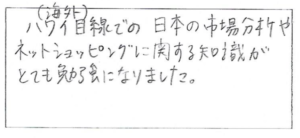 (海外)
ハワイ目線での日本の市場分析や
ネットショッピングに関する知識が
とても勉強になりました。